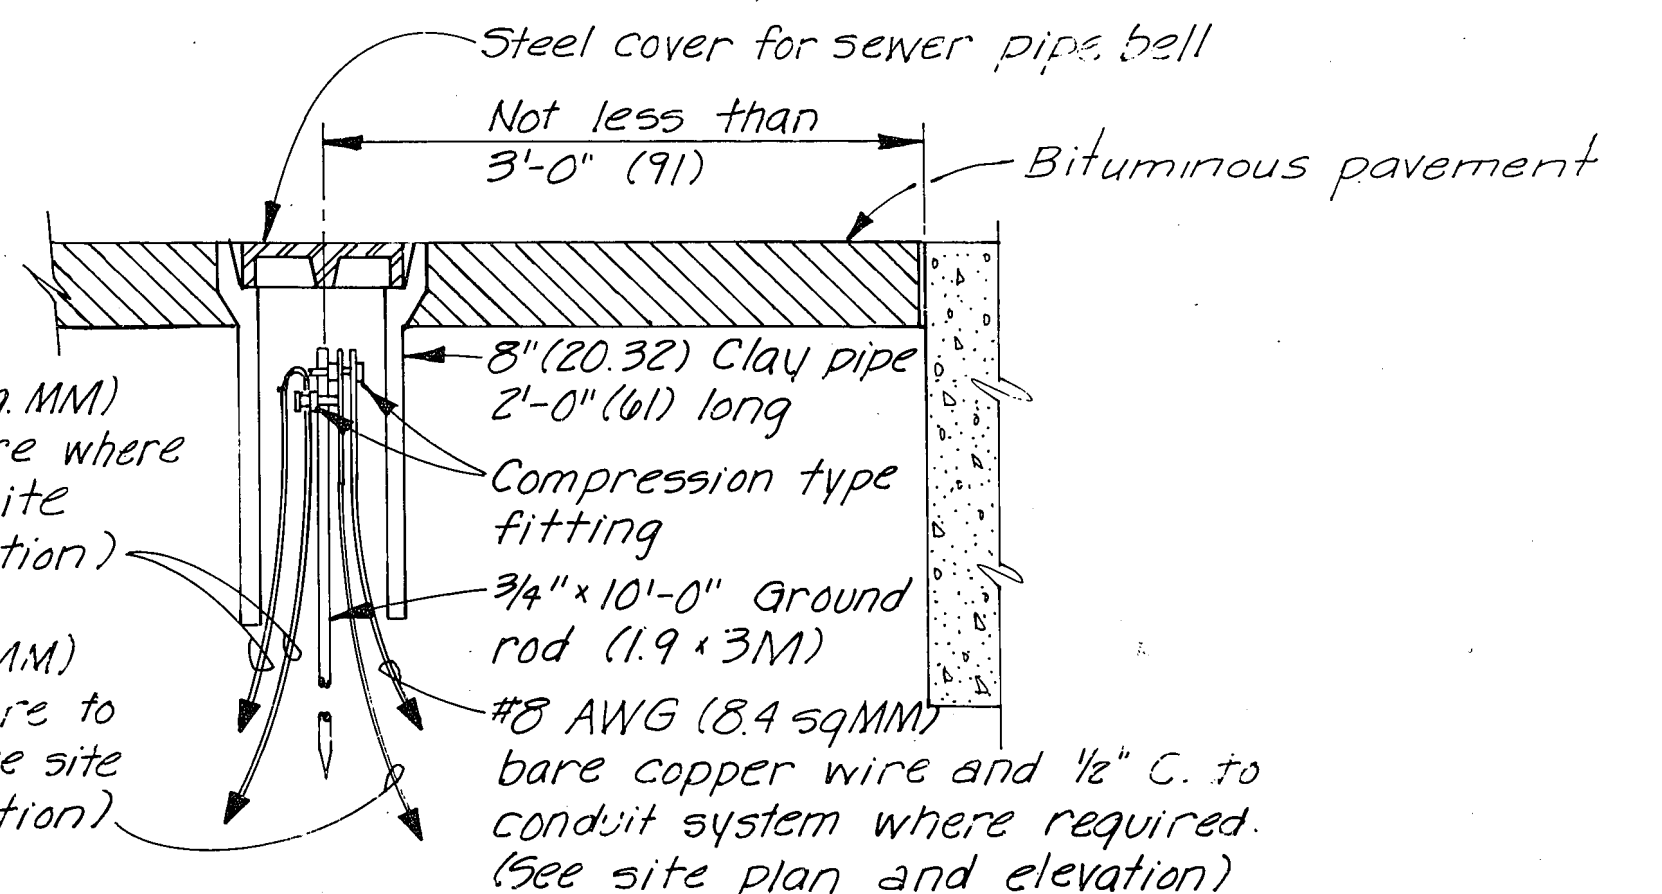 Steel cover for sewer pipe bell
Not less than
3'-0" (91)
Bituminous pavement
8" (20.32) Clay pipe
2'-0" (61) long
Compression type
fitting
3/4" x 10'-0" Ground
rod (1.9 x 3M)
#8 AWG (8.4 sqMM)
bare copper wire and 1/2" C. to
conduit system where required.
(See site plan and elevation)
. MM)
re where
ite
tion)
MM)
re to
e site
tion)